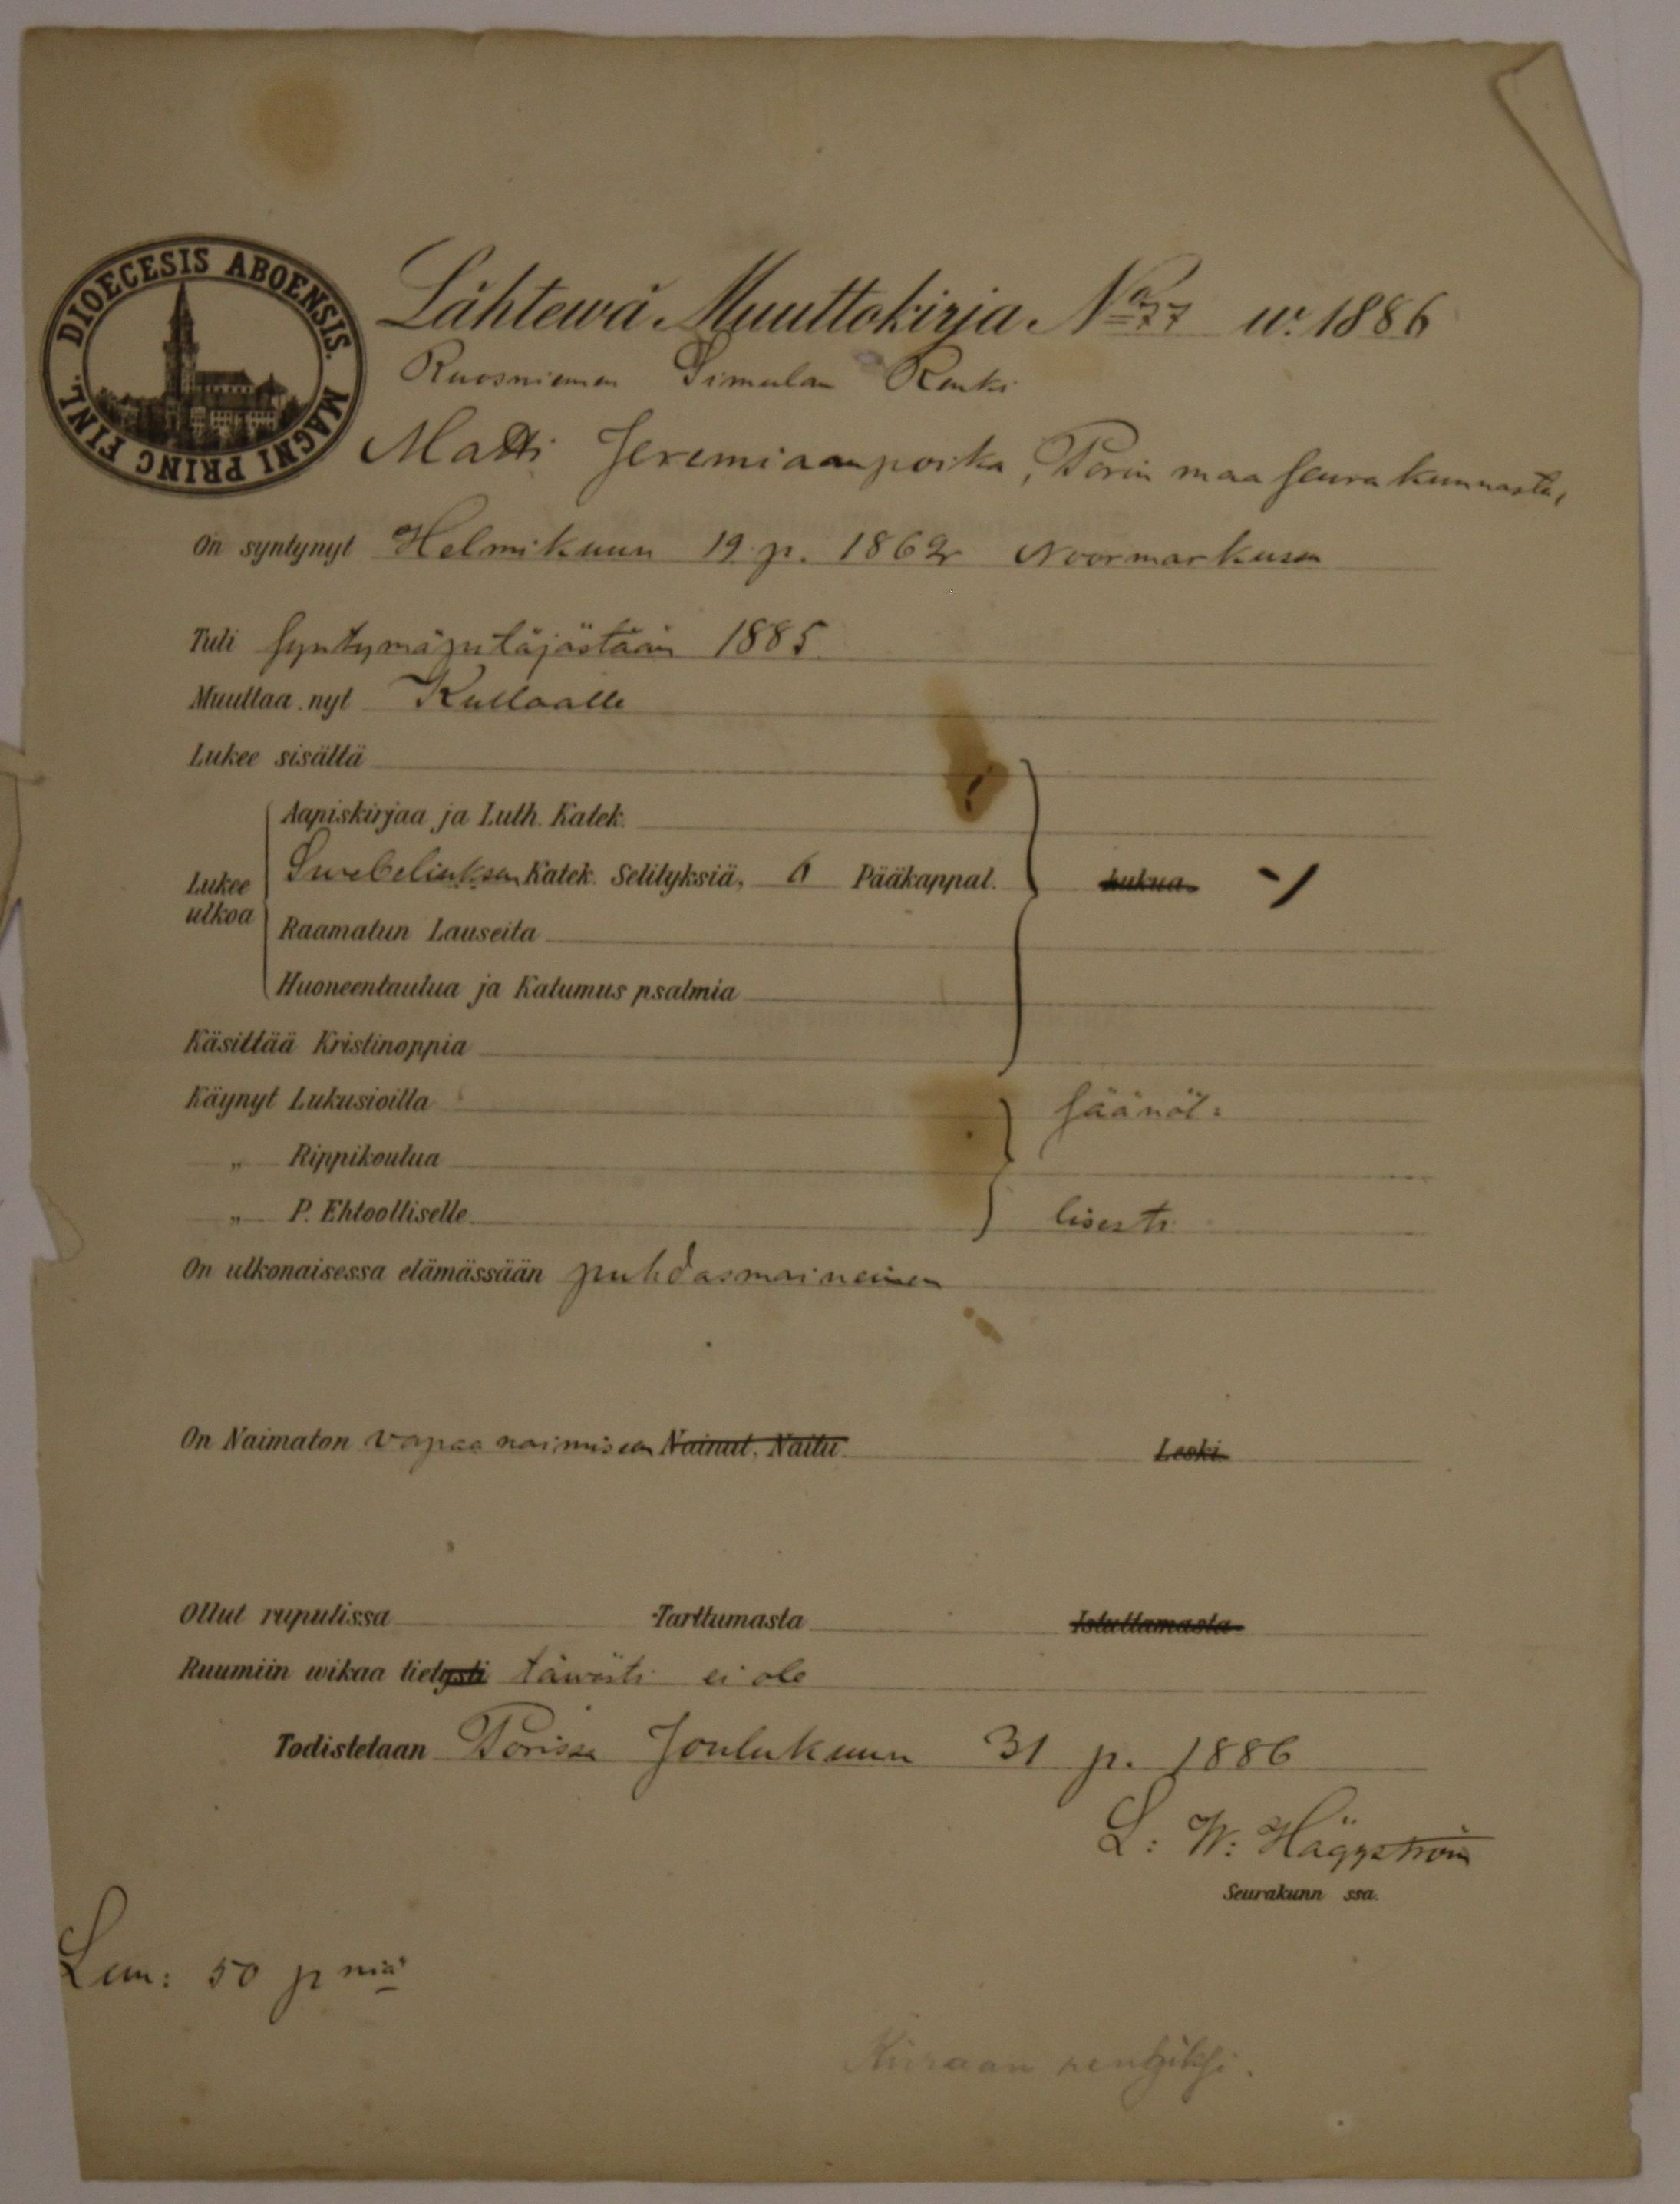 DIOECESIS ABOENSIS. MAGNI PRINC FINL.
Lähtewä Muuttokirja No 77 w. 1886
Ruosniemen Simulan Renki
Matti Jeremiaanpoika, Porin maa seurakunnasta,
On syntynyt Helmikuun 19 p. 1862 Noormarkussa
Tuli syntymäpitäjästään 1885
Muuttaa nyt Kullaalle
Lukee sisältä
Aapiskirjaa ja Luth. Katek.
Lukee ulkoa Swebeliuksen Katek. Selityksiä, 6 Pääkappal. Lukua.
Raamatun Lauseita
Huoneentaulua ja Katumus psalmia
Käsittää Kristinoppia
Käynyt Lukusioilla säänöl:
„ Rippikoulua
„ P. Ehtoolliselle lisesti
On ulkonaisessa elämässään puhdasmaineinen
On Naimaton vapaa naimiseen Nainut, Naitu Leski
Ollut rupulissa Tarttumasta Istuttamasta
Ruumiin wikaa tietysti täwästi ei ole
Todistetaan Porissa Joulukuun 31 p. 1886
L: W: Häggström
Seurakunn ssa.
Lun: 50 p niä
Kiiraan rengiksi.